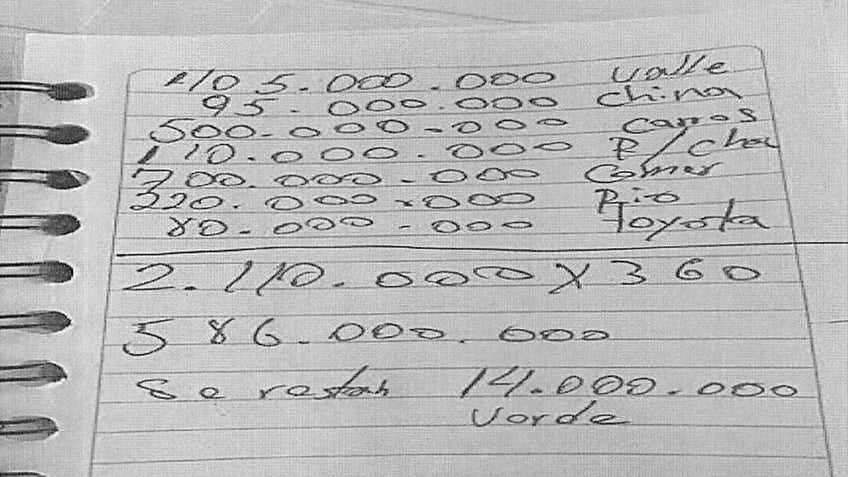 105.000.000 Valle
95.000.000 China
500.000.000 Carros
110.000.000 P/Cha
700.000.000 Comer
320.000.000 Rio
80.000.000 Toyota
2.110.000 X 360
586.000.000
Se restan 14.000.000
Vorde